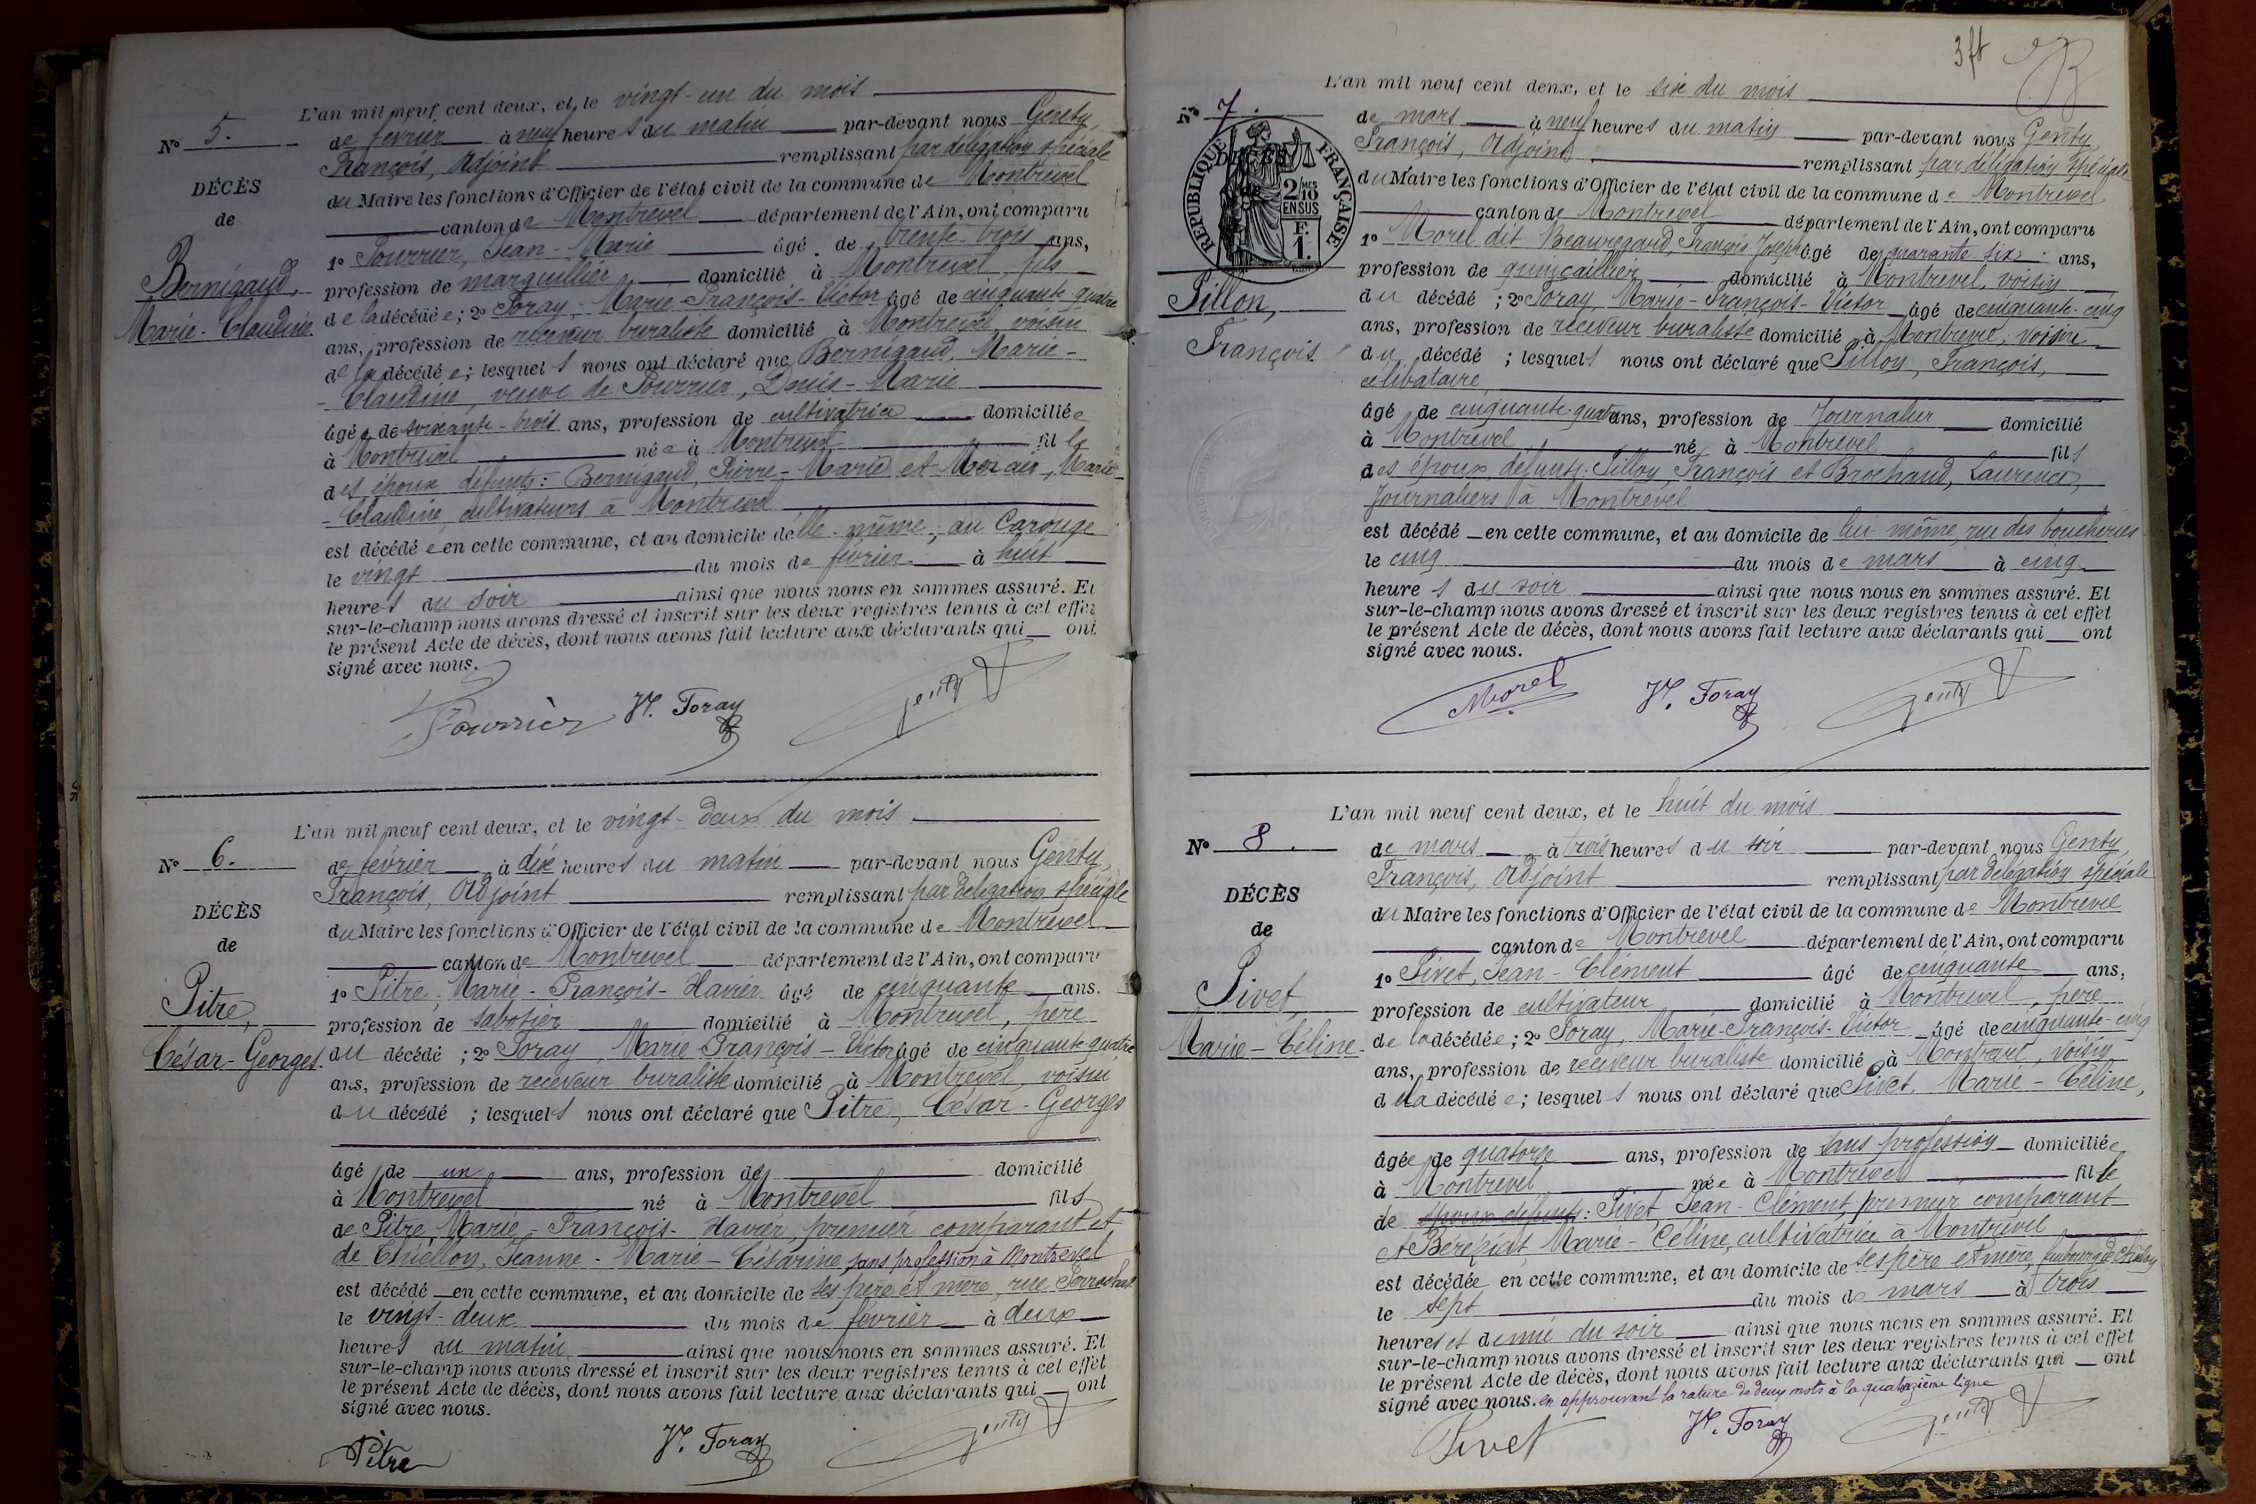 L'an mil neuf cent deux, et le vingt-un du mois
No 5.
de février à neuf heures du matin par-devant nous Genty,
François, Adjoint remplissant par délégation spéciale
DÉCÈS
du Maire les fonctions d'Officier de l'état civil de la commune de Montrevel
de
canton de Montrevel département de l'Ain, ont comparu
1o Pourrier, Jean-Marie âgé de trente-trois ans,
Bernigaud,
profession de marguillier domicilié à Montrevel, fils
Marie-Claudine.
de la décédée; 2o Foray, Marie-François-Victor âgé de cinquante quatre
ans, profession de receveur buraliste domicilié à Montrevel, voisin
de la décédée; lesquels nous ont déclaré que Bernigaud, Marie-
-Claudine, veuve de Pourrier, Denis-Marie
âgée de soixante-trois ans, profession de cultivatrice domiciliée
à Montrevel née à Montrevel fille
des époux défunts: Bernigaud, Pierre-Marie et Marie-
-Claudine, cultivateurs à Montrevel
est décédée en cette commune, et au domicile d'elle-même, au Carouge
le vingt du mois de février à huit
heures du soir ainsi que nous nous en sommes assuré. Et
sur-le-champ nous avons dressé et inscrit sur les deux registres tenus à cet effet
le présent Acte de décès, dont nous avons fait lecture aux déclarants qui ont
signé avec nous.
Pourrier Vr. Foray Genty
L'an mil neuf cent deux, et le vingt-deux du mois
No 6.
de février à dix heures du matin par-devant nous Genty,
François, Adjoint remplissant par délégation spéciale
DÉCÈS
du Maire les fonctions d'Officier de l'état civil de la commune de Montrevel
de
canton de Montrevel département de l'Ain, ont comparu
Pitre,
1o Pitre, Marie-François-Xavier âgé de cinquante ans.
profession de sabotier domicilié à Montrevel, père
César-Georges.
du décédé ; 2o Foray, Marie François-Victor âgé de cinquante quatre
ans, profession de receveur buraliste domicilié à Montrevel, voisin
du décédé ; lesquels nous ont déclaré que Pitre, César-Georges
âgé de un ans, profession de domicilié
à Montrevel né à Montrevel fils
de Pitre, Marie-François-Xavier, premier comparant et
de Thiellon, Jeanne-Marie-Césarine, sans profession à Montrevel
est décédé en cette commune, et au domicile de ses père et mère, rue
le vingt-deux du mois de février à deux
heures du matin ainsi que nous nous en sommes assuré. Et
sur-le-champ nous avons dressé et inscrit sur les deux registres tenus à cet effet
le présent Acte de décès, dont nous avons fait lecture aux déclarants qui ont
signé avec nous.
Pitre Vr. Foray Genty
3 ft
L'an mil neuf cent deux, et le six du mois
No 7.
de mars à neuf heures du matin par-devant nous Genty,
François, Adjoint remplissant par délégation spéciale
DÉCÈS
de
RÉPUBLIQUE FRANÇAISE
2/10MES
EN SUS
F.
1.
du Maire les fonctions d'Officier de l'état civil de la commune de Montrevel
canton de Montrevel département de l'Ain, ont comparu
1o Morel dit Beauregard, François-Joseph âgé de quarante six ans,
profession de quincaillier domicilié à Montrevel, voisin
Pillon,
du décédé ; 2o Foray, Marie-François-Victor âgé de cinquante-cinq
ans, profession de receveur buraliste domicilié à Montrevel, voisin
François
du décédé ; lesquels nous ont déclaré que Pillon, François,
célibataire,
âgé de cinquante-quatre ans, profession de Journalier domicilié
à Montrevel né à Montrevel fils
des époux défunts: Pillon, François et Brochand, Laurence,
Journaliers à Montrevel
est décédé en cette commune, et au domicile de lui-même, rue des boucheries
le cinq du mois de mars à cinq
heures du soir ainsi que nous nous en sommes assuré. Et
sur-le-champ nous avons dressé et inscrit sur les deux registres tenus à cet effet
le présent Acte de décès, dont nous avons fait lecture aux déclarants qui ont
signé avec nous.
Morel Vr. Foray Genty
L'an mil neuf cent deux, et le huit du mois
No 8.
de mars à trois heures du soir par-devant nous Genty,
François, Adjoint remplissant par délégation spéciale
DÉCÈS
du Maire les fonctions d'Officier de l'état civil de la commune de Montrevel
de
canton de Montrevel département de l'Ain, ont comparu
Pivet,
1o Pivet, Jean-Clément âgé de cinquante ans,
profession de cultivateur domicilié à Montrevel, père
Marie-Céline.
de la décédée; 2o Foray, Marie-François-Victor âgé de cinquante-cinq
ans, profession de receveur buraliste domicilié à Montrevel, voisin
de la décédée; lesquels nous ont déclaré que Pivet, Marie-Céline,
âgée de quatorze ans, profession de sans profession domiciliée
à Montrevel née à Montrevel fille
de époux défunts: Pivet, Jean-Clément premier comparant
et Béréziat, Marie-Céline, cultivatrice à Montrevel
est décédée en cette commune, et au domicile de ses père et mère, faubourg de
le sept du mois de mars à trois
heures et demie du soir ainsi que nous nous en sommes assuré. Et
sur-le-champ nous avons dressé et inscrit sur les deux registres tenus à cet effet
le présent Acte de décès, dont nous avons fait lecture aux déclarants qui ont
signé avec nous. en approuvant la rature de deux mots à la quatorzième ligne
Pivet Vr. Foray Genty